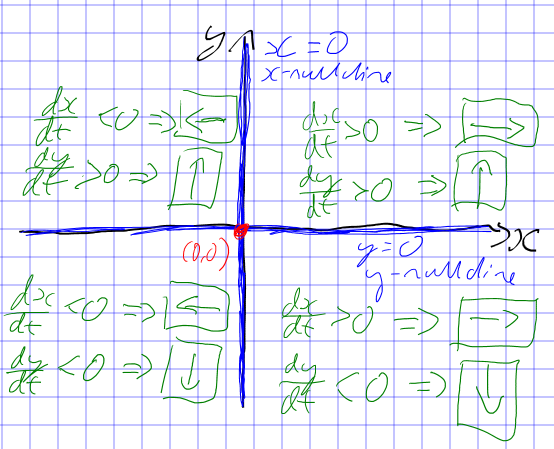 y
x = 0
x-nullcline
dx/dt < 0 ⇒ ←
dy/dt > 0 ⇒ ↑
dx/dt > 0 ⇒ →
dy/dt > 0 ⇒ ↑
x
(0,0)
y = 0
y-nullcline
dx/dt < 0 ⇒ ←
dy/dt < 0 ⇒ ↓
dx/dt > 0 ⇒ →
dy/dt < 0 ⇒ ↓